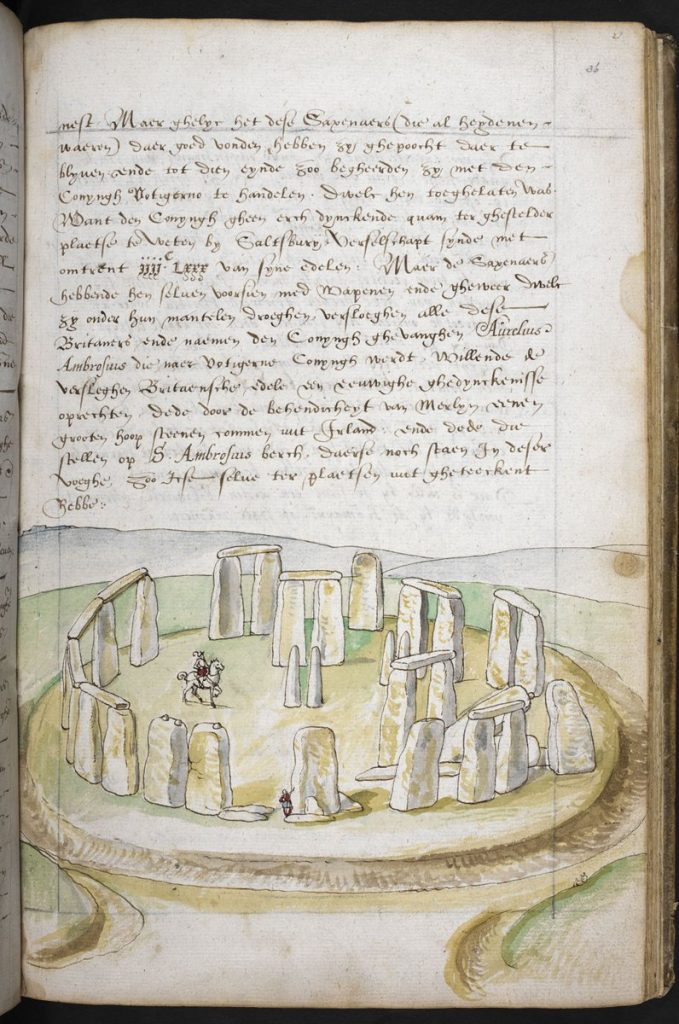 36
nest. Maer ghelyc het dese Saxenaers (die al heydenen
waeren) daer goed vonden hebben zy ghepoocht daer te
blyven ende tot dien eynde zoo begheerden zy met den
Conyngh Votigerno te handelen. dwelc hen toeghelaten was.
Want den Conyngh gheen erch dynckende quam ter ghestelder
plaetse te weten by Saltsbury. Verselschapt synde met
omtrent iiijc Lxxx van syne edelen. Maer de Saxenaers
hebbende hen selven voorsien med Wapenen ende gheweer dwelc
zy onder hun mantelen droeghen, versloeghen alle dese
Britaners ende naemen den Conyngh ghevanghen. Aurelius
Ambrosius die naer Votigerne Conyngh werdt. Willende de
versleghen Britaensche edele een eeuwighe ghedynckenisse
oprechten. dede door de behendicheyt van Merlyn eenen
grooten hoop steenen commen uut Irland: ende dede die
stellen op S. Ambrosius berch. diverse noch staen In deser
voeghe. zoo Icse selve ter plaetsen uut gheteeckent
hebbe: